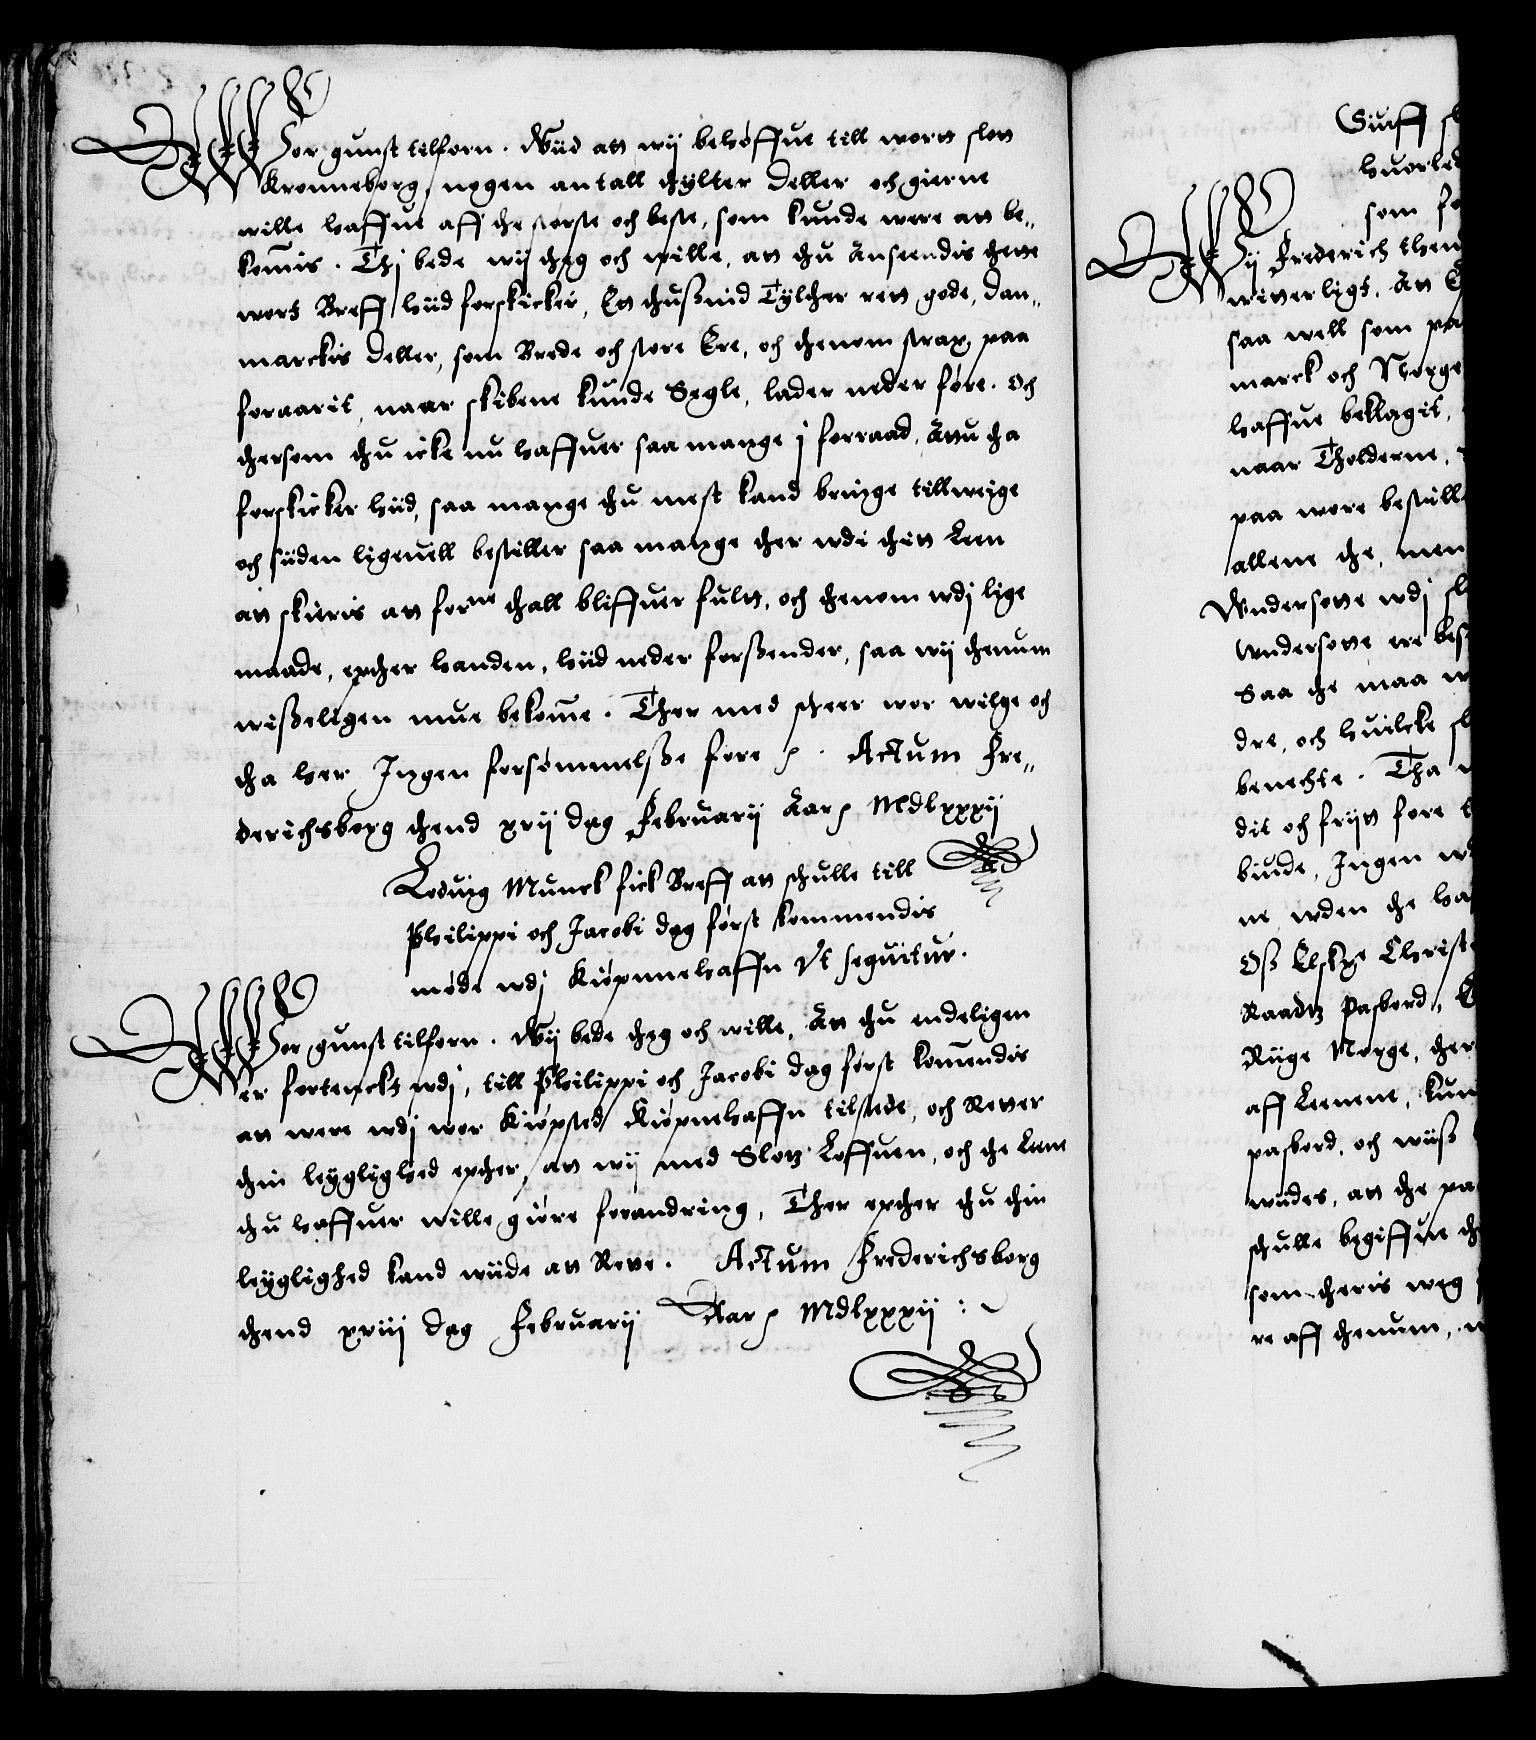 Wor gunst tilforn. Wiid att wij behøffue till wortt slott
Kronneborg, nogen antall thylter Deller och gierne
wille haffue aff the største och beste, som kunde were att be„
komis. Thj bede wij theg och wille, att thu Anseendis thette
wort Breff hiid forskicker, Ett thußind Tylther rett gode, Dan„
marckis Deller, som Brede och store Ere, och thenom strax paa
foraarit, naar skibene kunde Segle, lader neder føre. Och
thersom thu icke nu haffuer saa mange j forraad, Attu tha
forskicker hiid, saa mange thu mest kand bringe tillweije
och siiden ligeuell bestiller saa mange ther wdi thitt Leen
att skieris att forne thall bliffuer fultt, och thenom wdj lige
maade, epther handen, hiid neder forßender, saa wij thenum
wißeligen mue bekome. Ther med scheer wor wilge och
tha her Ingen forsømmelße fore. Actum Fre„
derichsborg thend xvij dag Februarij Aar Mdlxxxij
Lodvig Munck fick Breff att schulle till
Philippi och Jacobi dag først kommendis
møde wdj Kiøpnnehaffn Vt seqvitur.
Wor gunst tilforn. Wij bede theg och wille, Att thu endeligen
er fortenckt wdj, till Philippi och Jacobi dag først komendis
att were wdj wor Kiøpsted Kiøpnehaffn tilstede, och Retter
thin leyglighed epther, att wij med Slotz Loffuen, och the Leen
thu haffuer wille giøre forandring, Ther epther thu thin
leyglighed kand wiide att Rette. Actum Frederichsborg
thend xviij dag Februarij Aar Mdlxxxij
Wij Frederich then
witterligt, Att
saa well som paa
marck och Norge
haffue beklagit,
naar Tholderne,
paa wore bestill
allene the, men
Wndersotte wdj
wndersotte ere
Saa the maa
dre, och huilcke
benechte. Tha
dit och friitt fore
biude, Ingen
ne wden the
Oß Elskxe Christ
Raadtz Pasbord,
Riige Norge, ther
aff Leenene, kun
pasbord, och wiiß
wides, att the pa
schulle begiffue
som theris weg
re aff thenum,